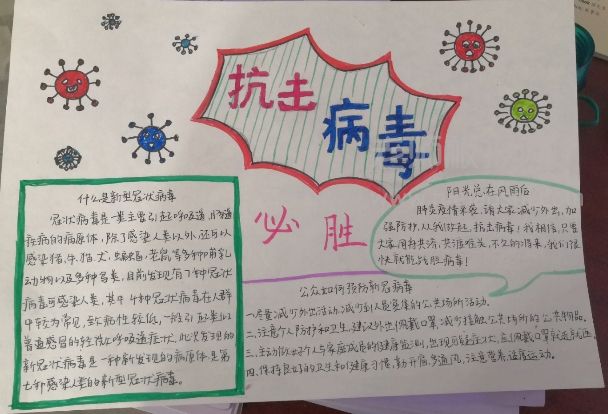 抗击
病毒
必胜
什么是新型冠状病毒
冠状病毒是一类主要引起呼吸道、肠道
疾病的病原体,除了感染人类以外,还可以
感染猪、牛、猫、犬、蝙蝠、老鼠等多种哺乳
动物以及多种鸟类,目前发现有7种冠状
病毒可感染人类,其中4种冠状病毒在人群
中较为常见,致病性较低,一般引起类似
普通感冒的轻微呼吸道症状。此次发现的
新冠状病毒是一种新发现的病原体,是第
七种感染人类的新型冠状病毒。
阳光总在风雨后
肺炎疫情来袭,请大家减少外出,加
强防护,从我做起,抗击病毒!我相信,只要
大家同舟共济,共渡难关,不久的将来,我们很
快就能战胜病毒!
公众如何预防新冠病毒
一.尽量减少外出活动,减少到人员密集的公共场所活动。
二.注意个人防护和卫生,建议外出佩戴口罩,减少接触公共场所的公共物品。
三.主动做好个人与家庭成员的健康监测,出现可疑症状,应佩戴口罩就近就医。
四.保持良好的卫生和健康习惯,勤开窗,多通风,注意营养,适度运动。